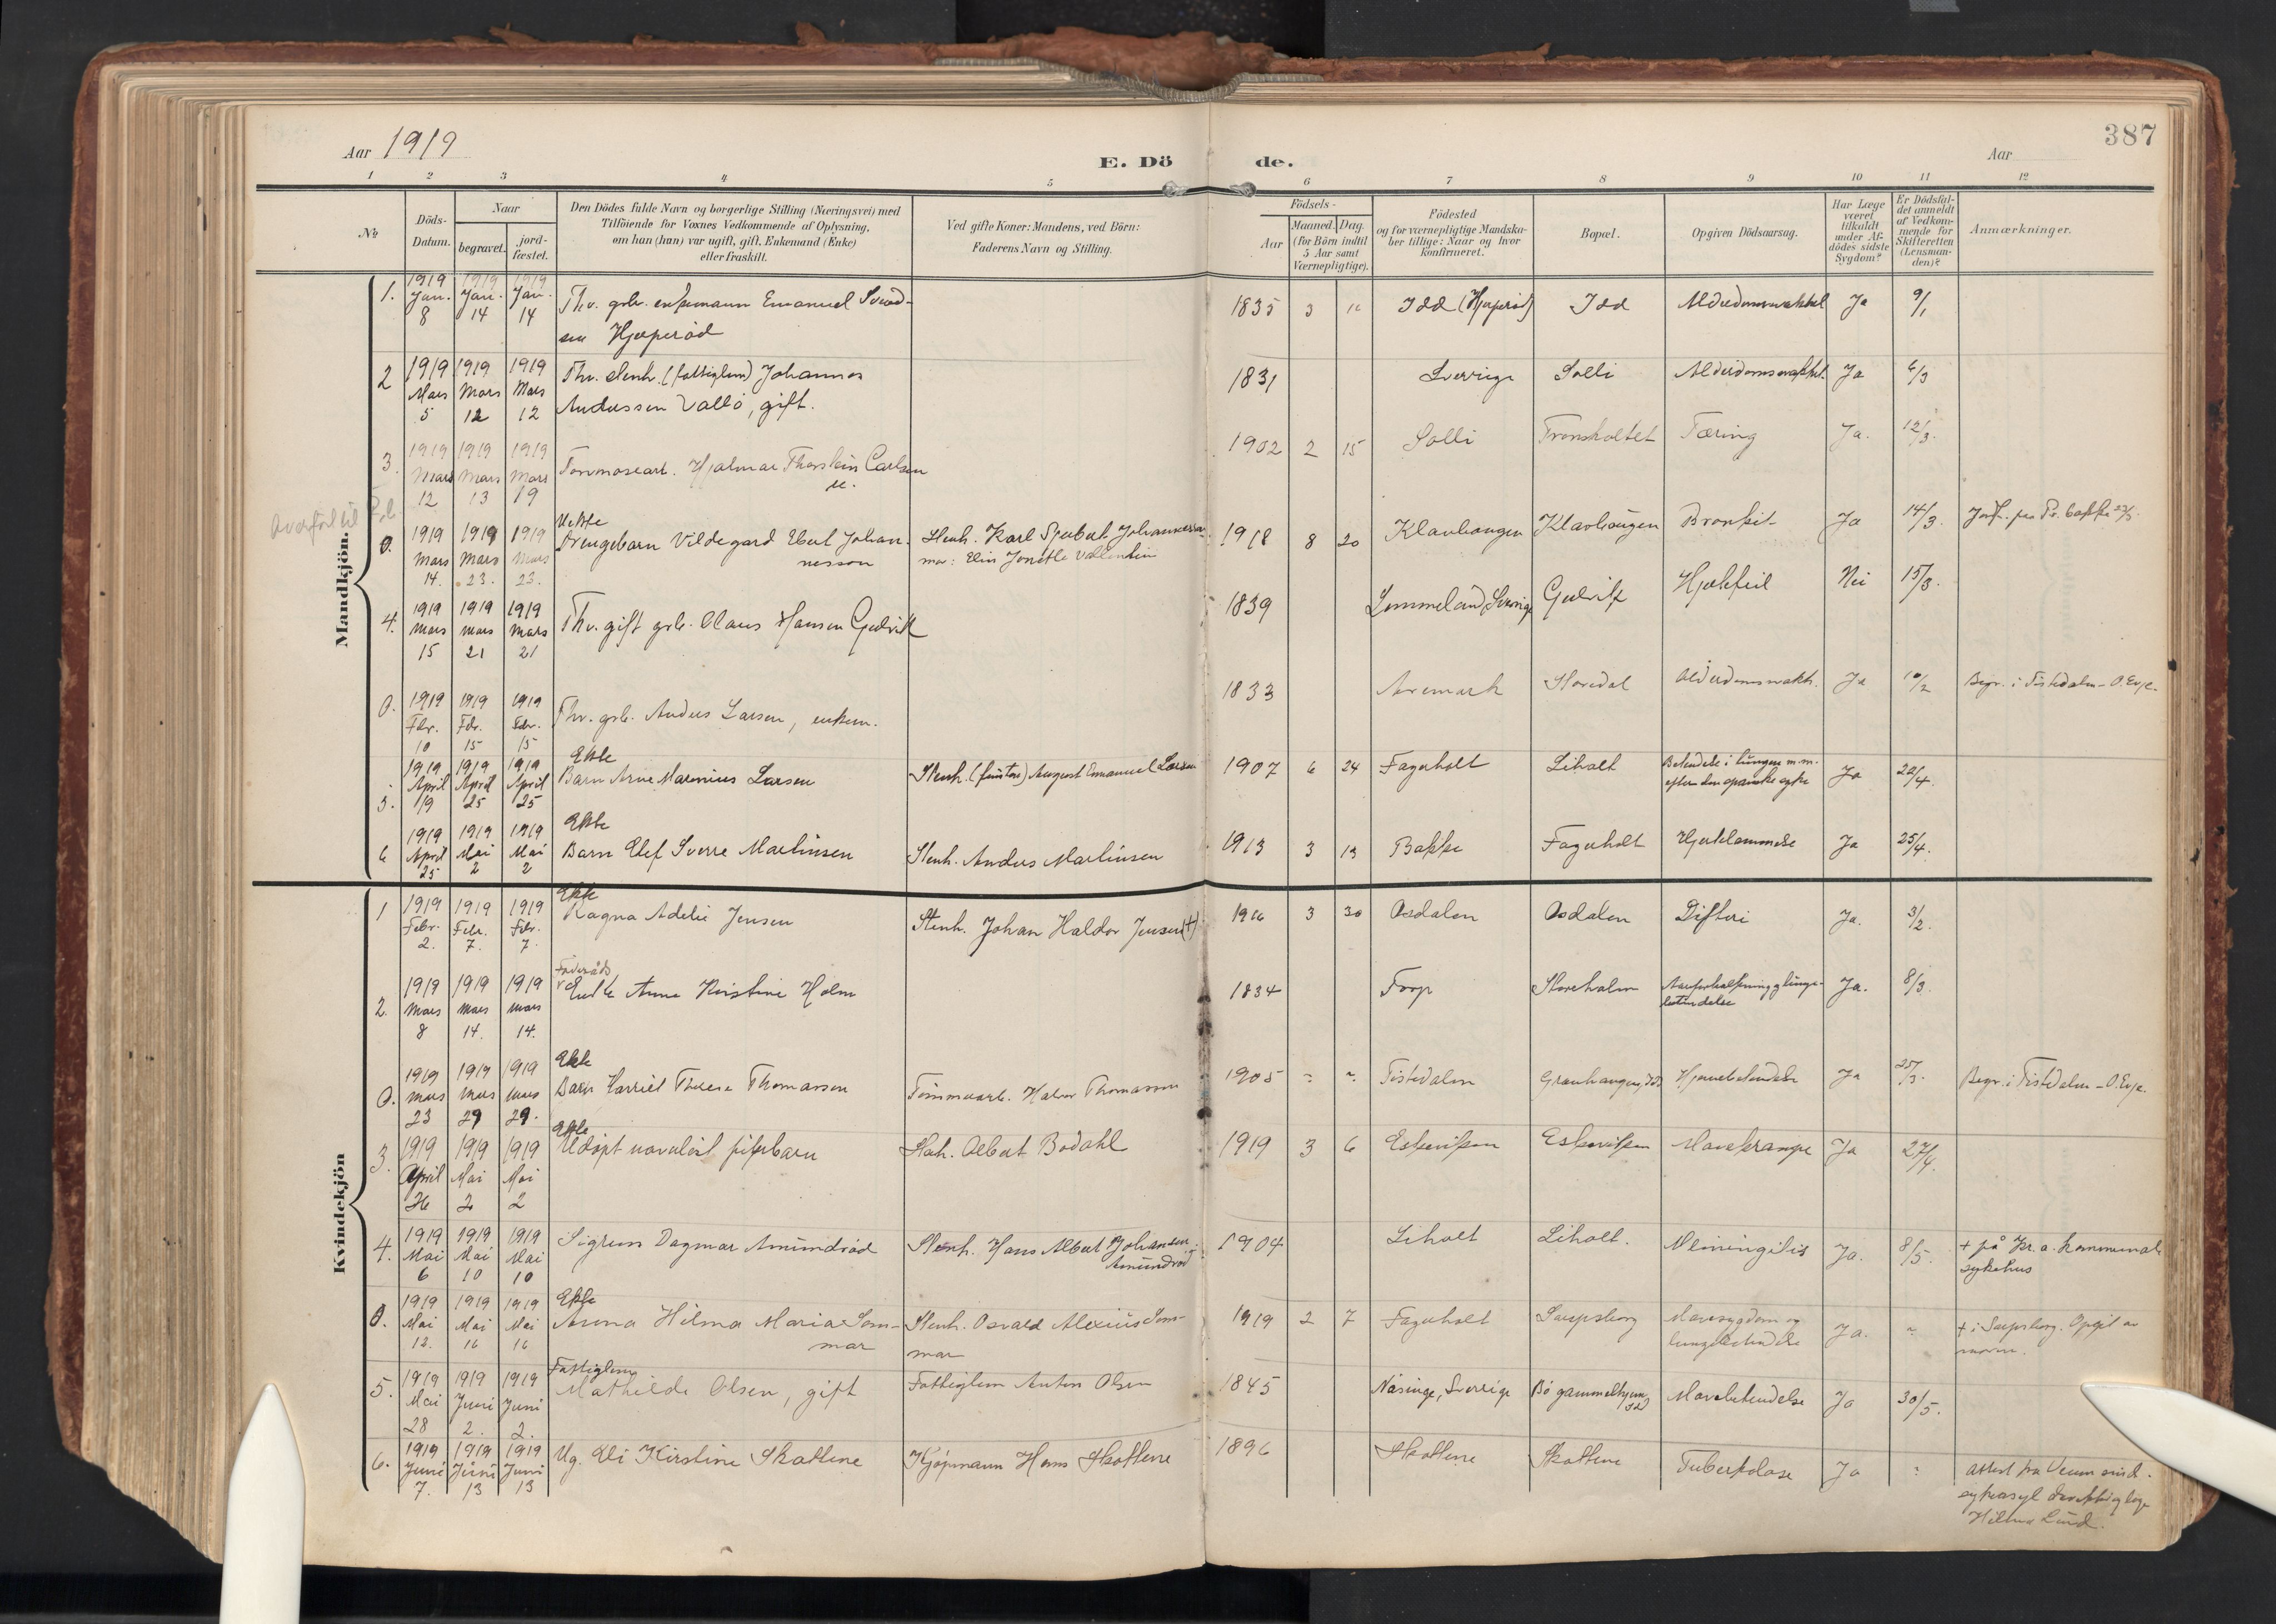 Aar 1919
E. Dö de.
Aar
387
1 2 3 4 5 6 7 8 9 10 11 12
No
Döds-Datum.
Naar
begravet.
jord-fæstet.
Den Dödes fulde Navn og borgerlige Stilling (Næringsvei) med
Tilföiende for Voxnes Vedkommende af Oplysning,
om han (hun) var ugift, gift, Enkemand (Enke)
eller fraskilt.
Ved gifte Koner: Mandens, ved Börn:
Faderens Navn og Stilling.
Födsels-
Aar
Maaned. Dag.
(for Börn indtil
5 Aar samt
Værnepligtige).
Födested
og for værnepligtige Mandska-
ber tillige: Naar og hvor
konfirmeret.
Bopæl.
Opgiven Dödsaarsag.
Har Læge
været
tilkaldt
under Af-
dödes sidste
Sygdom?
Er Dödsfal-
det anmeldt
af Vedkom-
mende for
Skifteretten
(Lensman-
den)?
Anmærkninger.
Mandkjön.
1. 1919 Jan. 8 1919 Jan. 14 1919 Jan. 14 Thv. grb. enkemann Emanuel Svend-
sen Hjæperöd
1835 3 Idd (Hjæperöd) Idd Ja 9/1
2 1919 Mars 5 1919 Mars 12 1919 Mars 12 Thv. stenh. (fattiglem) Johannes
Anderssen Vallö, gift.
1831 Sverrige Solli Ja 6/3
3. 1919 Mars 12 1919 Mars 13 1919 Mars 19 Hjalmar Thorstein Carlsen
1902 2 15 Solli Tronsholtet Tæring Ja. 12/3.
0. 1919 Mars 14. 1919 Mars 23. 1919 Mars 23. Uekte
Drengebarn Vildegard Ebert Johan-
nesson
Stenh. Karl
mor: Elin
1918 8 20 Klavhaugen Klavhaugen Bronkit Ja 14/3.
4. 1919 Mars 15 1919 Mars 21 1919 Mars 21 Thv. gift grb. Claus Hansen Gjedvik
1839 Gjelvik Hjertefeil Nei 15/3.
0. 1919 Febr. 10 1919 Febr. 15 1919 Febr. 15 Thv. grb. Anders Larsen, enkem.
1833 Aremark Storedal Ja 10/2 Begr. i Tistedalen - O. Evje.
5. 1919 April 19 1919 April 25 1919 April 25 Ekte
Barn Arne Marinius Larsen
August Emanuel Larsen
1907 6 24 Fagerholt Liholt Betendelse i lungen m.m.
efter den spanske syke
Ja 22/4.
6 1919 April 25 1919 Mai 2 1919 Mai 2 Ekte
Barn Olef Sverre Martinsen
Stenh. Anders Martinsen
1913 3 13 Bakke Fagerholt Hjertelammelse Ja 25/4.
Kvindekjön
1 1919 Febr. 2. 1919 Febr. 7. 1919 Febr. 7. Ekte
Ragna Adelie Jensen
Stenh. Johan Haldor Jensen (+)
1916 3 30 Asdalen Asdalen Difteri Ja. 3/2.
2. 1919 Mars 8 1919 Mars 14. 1919 Mars 14. Föderåds
Enke Anna Kirstine Holm
1834 Torp Storeholm Ja. 8/3.
0. 1919 Mars 23 1919 Mars 29 1919 Mars 29. Ekte
Barn Harriet Therese Thomassen
Tömmerarb. Halvor Thomassen
1905 Tistedalen Granhaugen, Idd Hjernebetendelse Ja 25/3. Begr. i Tistedalen - O. Evje.
3. 1919 April 26 1919 Mai 2 1919 Mai 2 Ekte
Udöpt navnlöst pikebarn
Albert Bodahl
1919 3 6 Eskeviken Eskeviken Mavekrampe Ja 27/4.
4. 1919 Mai 6 1919 Mai 10 1919 Mai 10 Sigrun Dagmar Amundröd
Stenh. Hans Albert Johansen
Amundröd
1904 Liholt Liholt. Meningitis Ja. 8/5. + på Kr.a. kommunale
sykehus
0. 1919 Mai 12. 1919 Mai 16 1919 Mai 16 Ekte
Anna Hilma Maria Som-
mar
Stenh. Osvald Alexius Som-
mar
1919 2 7 Fagerholt Sarpsborg Mavesygdom og
lungebetendelse
Ja. + i Sarpsborg. Opgit av
moren.
5. 1919 Mai 28 1919 Juni 2. 1919 Juni 2. Fattiglem
Mathilde Olsen, gift
Fattiglem Anton Olsen
1845 Näsinge, Sverrige Bö gammelhjem, Idd Mavebetendelse Ja 30/5.
6. 1919 Juni 7. 1919 Juni 13 1919 Juni 13 Ug. Evi Kirstine Skottene
Kjöpmann Hans Skottene
1896 Skottene Skottene Tuberkolose Ja Attest fra Veum sind-
sykeasyl
Hilmar Lund.